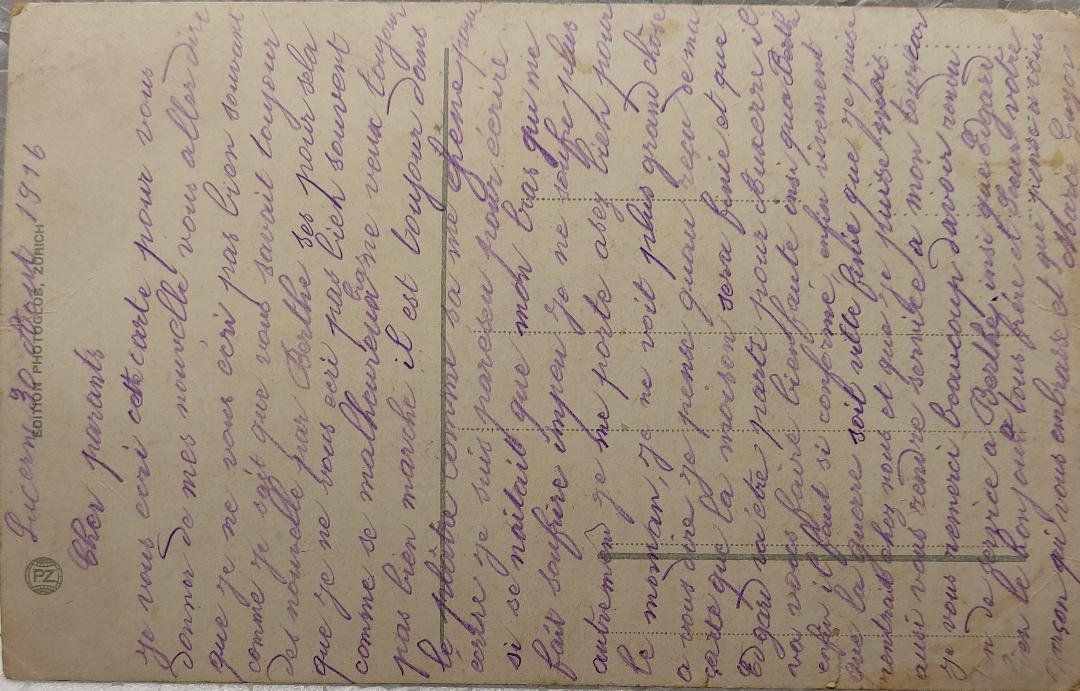 Lucerne 30 Août 1916
EDITION PHOTOGLOB, ZÜRICH
PZ
Cher parants
je vous ecri cett carte pour vous
donner de mes nouvelle vous aller dir
que je ne vous ecri pas bien souvant
comme je sait que vous savrit toujour
des nouvelle par Berthe ses pour sela
que je ne vous ecri pas bien souvent
comme se malheureux bras ne veux toujour
pas bien marché il est toujour dans
le platre comme sa me ghene pour
ecrire je suis pareseu pour écrire
si se naitait que mon bras que me
fait soufrire impeu je ne soufre plus
autrement je me porte asez bien pour
le moman, je ne voit plus grand chose
a vous dire je pense quan reçu de ma
carte que la moison sera finie et que
Edgard va être parti pour Aucerre il
va vous faire bien faute insi qua Berthe
enfin il faut si conformé enfin vivement
que la guere soit vitte finie que je puise
rentrait chez nous et qua je puise
ausi vous rendre service a mon tour car
je vous remerci beaucoup davoir rendu
de service a Berthe, insi que Edgard
bien le bonjour a tous frère et Seur votre
garçon qui vous embrasse et que pense a vous